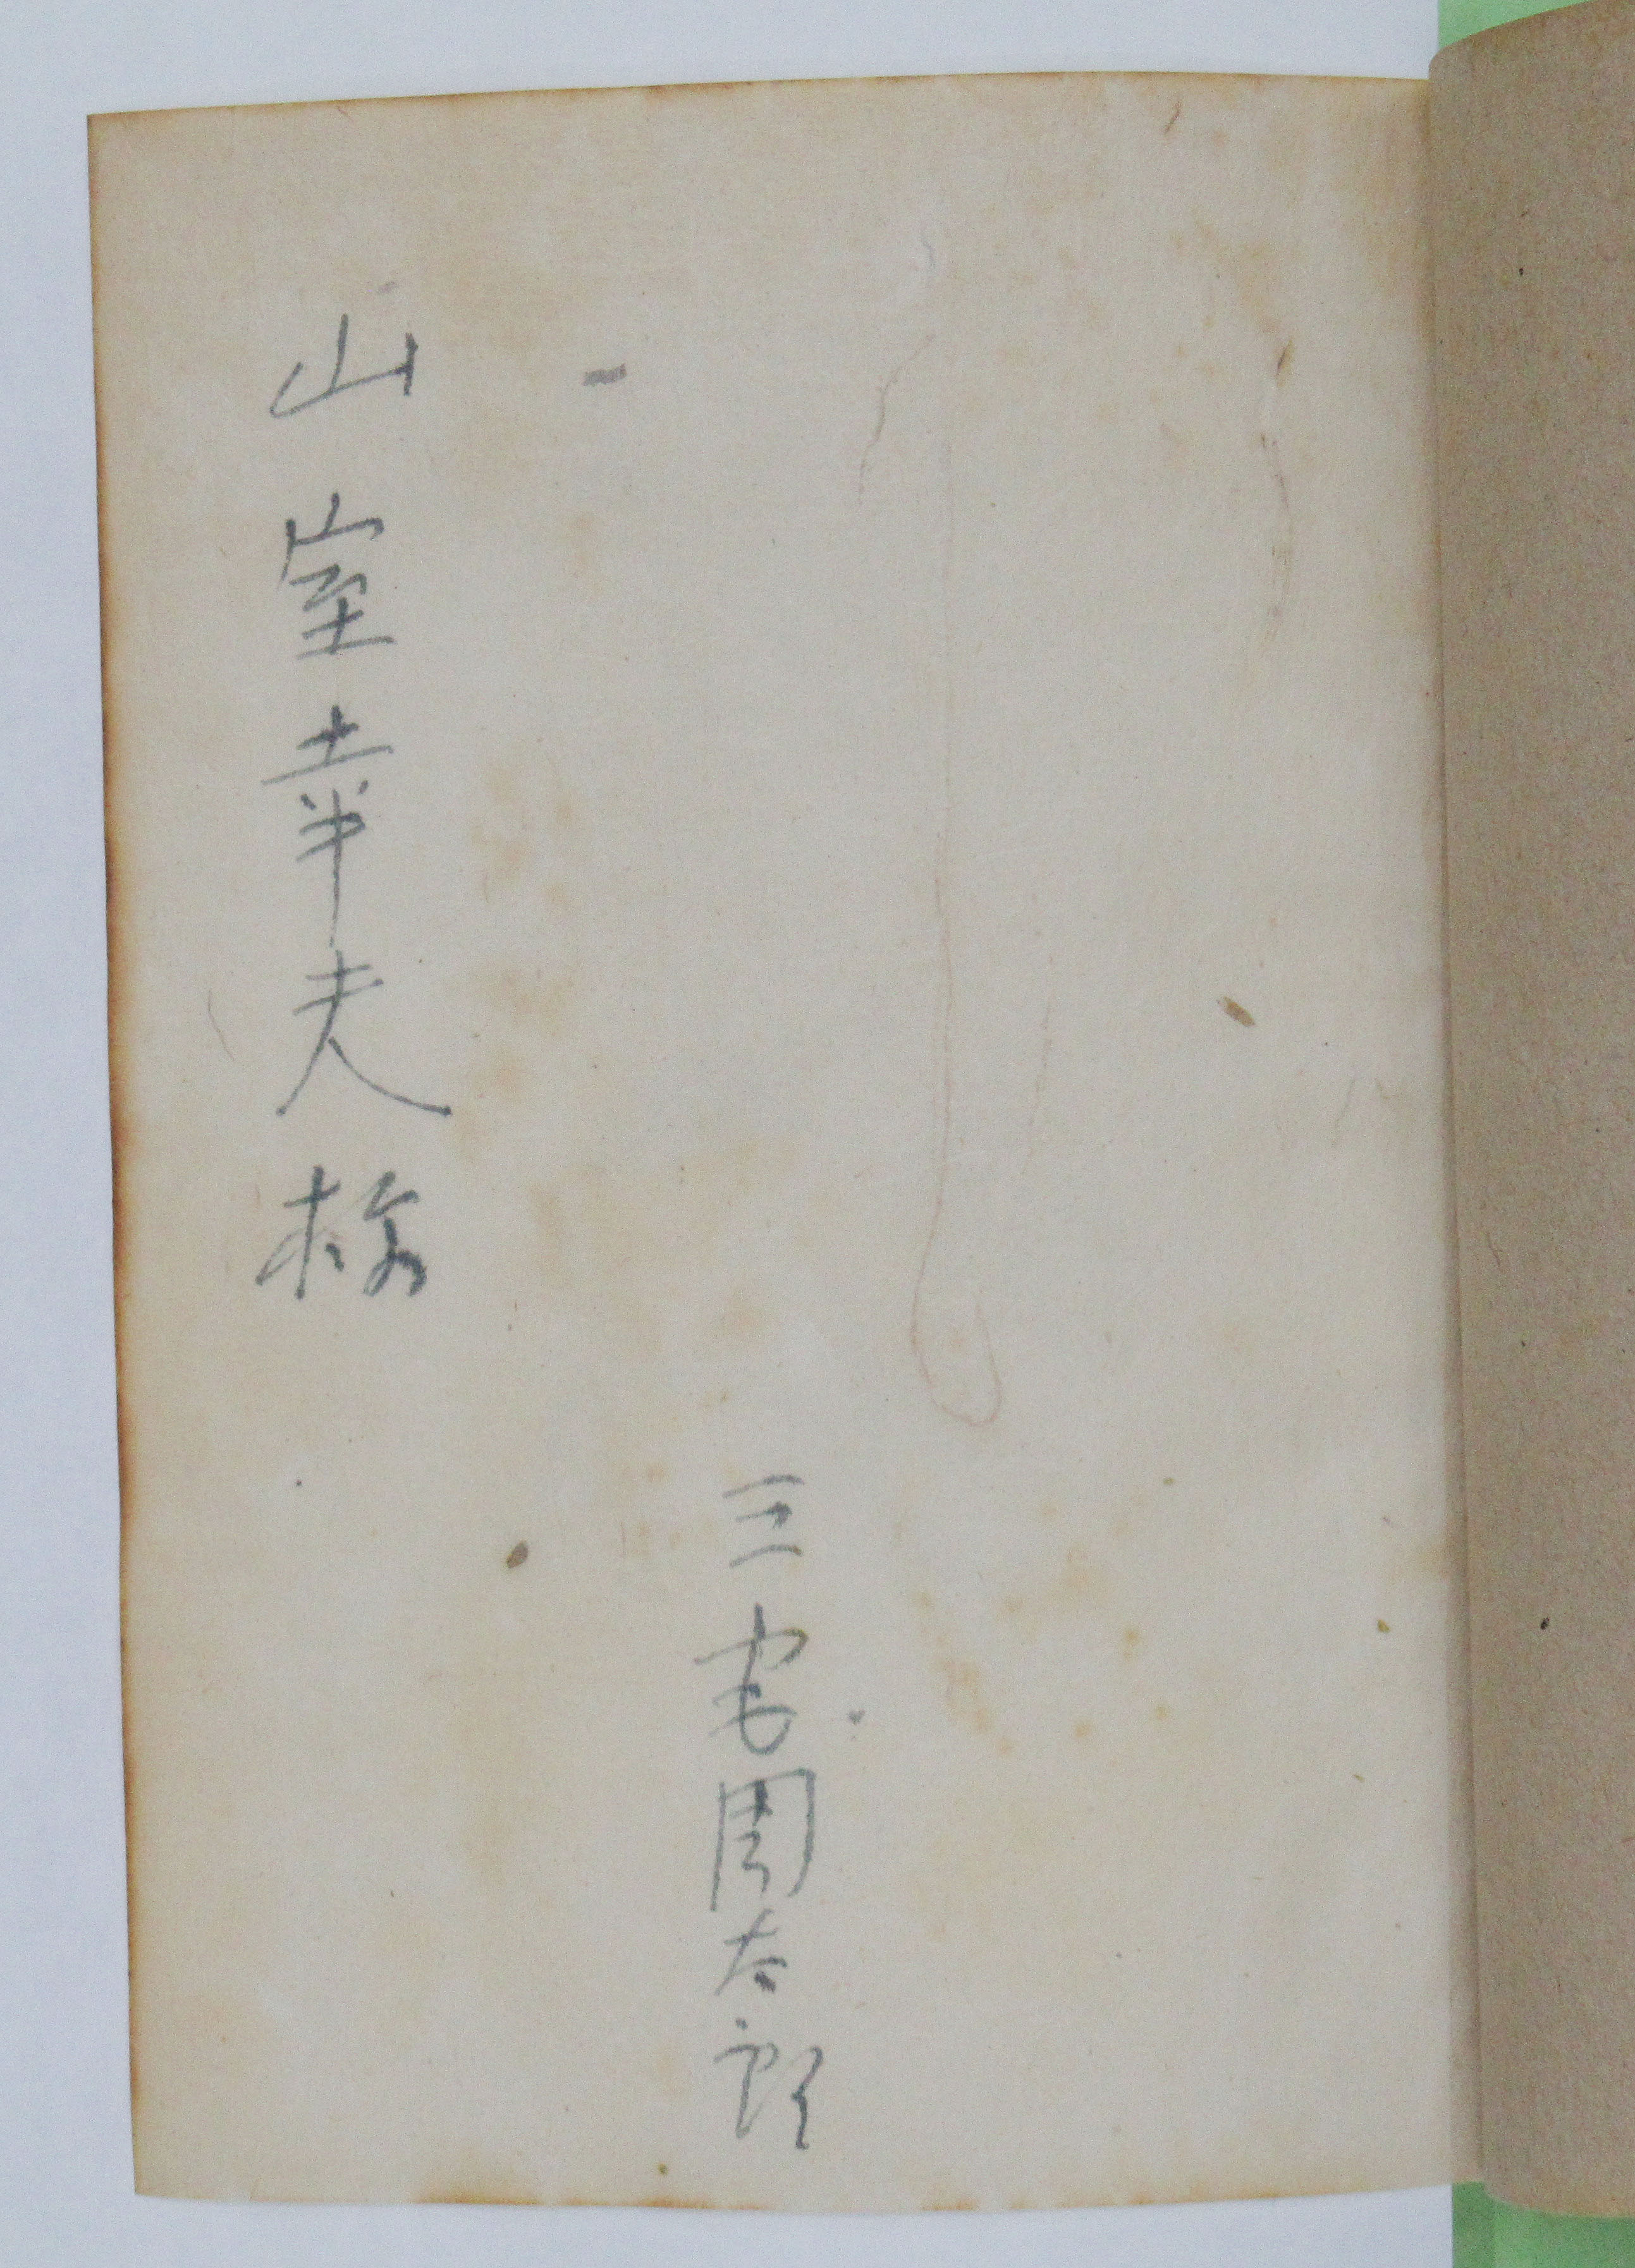 三宅周太郎
山室幸夫様